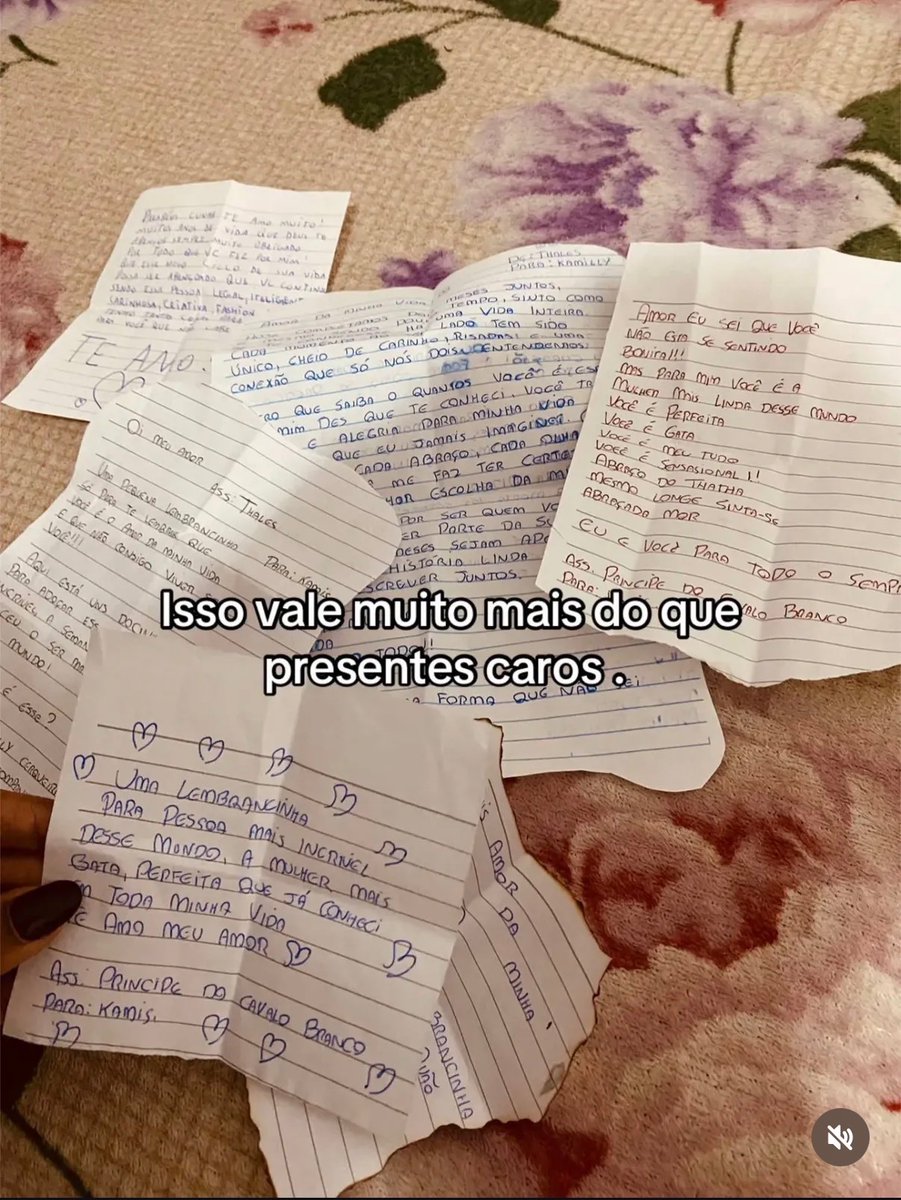 PARABÉN CUNHA TE AMO MUITO!
MUITOS ANOS DE VIDA QUE DEUS TE
SEMPRE MUITO OBRIGADO
POR TUDO QUE VC FEZ POR MIM
QUE ESSE NOVO CICLO DE SUA VIDA
POSSA SER ABENÇOADO QUE VC CONTINUE
SENDO ESSA PESSOA LEGAL, INTELIGENTE
CARINHOSA, CRIATIVA, FASHION
PARA VOCÊ QUE NÃO CABE
TE AMO.
DE: THALES
PARA: KAMILLY
AMOR DA MINHA VIDA
MESES JUNTOS,
TEMPO, SINTO COMO
UMA VIDA INTEIRA.
CADA LADO TEM SIDO
ÚNICO, CHEIO DE CARINHO, RISADAS! E UMA
CONEXÃO QUE SÓ NÓS DOIS ENTENDEMOS!
RO QUE SAIBA O QUANTOS VOCÊ É ES
MIM DES QUE TE CONHECI, VOCÊ TA
E ALEGRIA PARA MINHA VIDA
QUE EU JAMAIS IMAGINEI
CADA ABRAÇO, CADA OLHA
ME FAZ TER CERTE
HOR ESCOLHA DA M
POR SER QUEM VO
ER PARTE DA SU
MESES SEJAM APE
HISTÓRIA LINDA
SCREVER JUNTOS.
FORMA QUE NÃO SEI
AMOR EU SEI QUE VOCÊ
NÃO ESTA SE SENTINDO
BONITA!!!
MAS PARA MIM VOCÊ É A
MULHER MAIS LINDA DESSE MUNDO
VOCÊ É PERFEITA
VOCÊ É GATA
VOCÊ É MEU TUDO
VOCÊ É SENSASIONAL!!
ABRAÇO DO THATHA
MESMO LONGE SINTA-SE
ABRAÇADA MOR
EU E VOCÊ PARA TODO O SEMPR
ASS. PRINCIPE DO CAVALO BRANCO
PARA:
OI MEU AMOR
ASS: THALES
PARA: KAMIS
UMA PEQUENA LEMBRANCINHA
SÓ PARA TE LEMBRAR QUE
VOCÊ É O AMOR DA MINHA VIDA
E QUE NÃO CONSIGO VIVER SE
VOCÊ!!!
AQUI ESTÁ UNS DOCIN
PARA ADOÇAR ESS
NCRIVEL A SEMAN
CEU O SER MA
MUNDO!
É ESSE?
LLY CERQUEIRA
Isso vale muito mais do que
presentes caros .
UMA LEMBRANCINHA
PARA PESSOA MAIS INCRIVEL
DESSE MUNDO, A MULHER MAIS
GATA, PERFEITA QUE JÁ CONHECI
EM TODA MINHA VIDA
TE AMO MEU AMOR
ASS: PRINCIPE DO CAVALO BRANCO
PARA: KAMIS.
AMOR DA MINHA
BRANCINHA